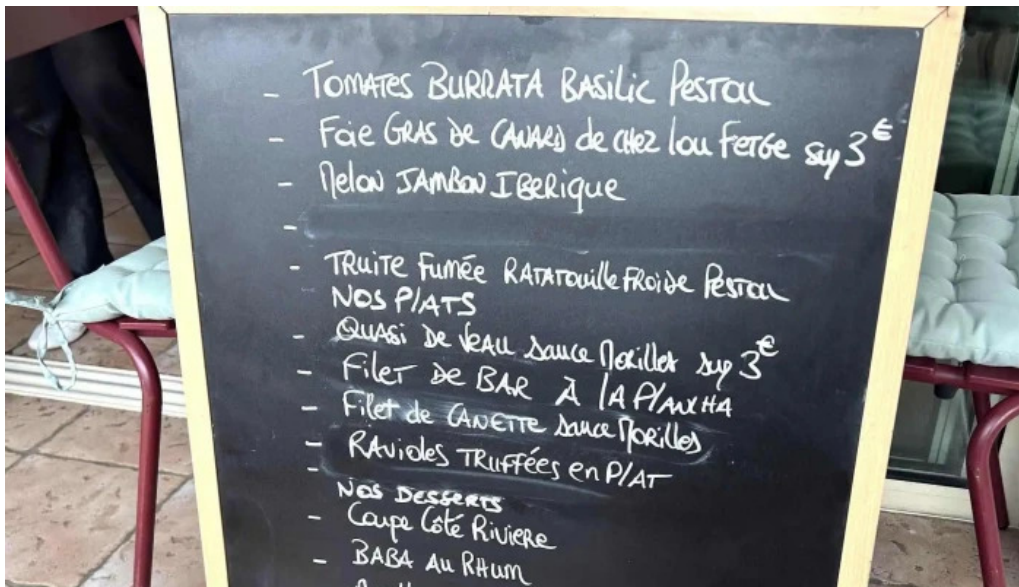 - TOMATES BURRATA BASILIC PESTOU
- Foie GRAS de CANARD de CHEZ Lou FERGE sup 3€
- Melon JAMBON IBERIQUE
-
- TRUITE Fumée RATATouille FROIDE PESTOU
NOS PlATS
- QUASi De VEAU Sauce Morilles sup 3€
- FILET De BAR À lA PlANCHA
- Filet de CANETTE Sauce Morilles
- RAVioles TRUFFÉES en PlAT
-
NOS DESSERTS
- Coupe Côté RIVIERE
- BABA Au RHUM